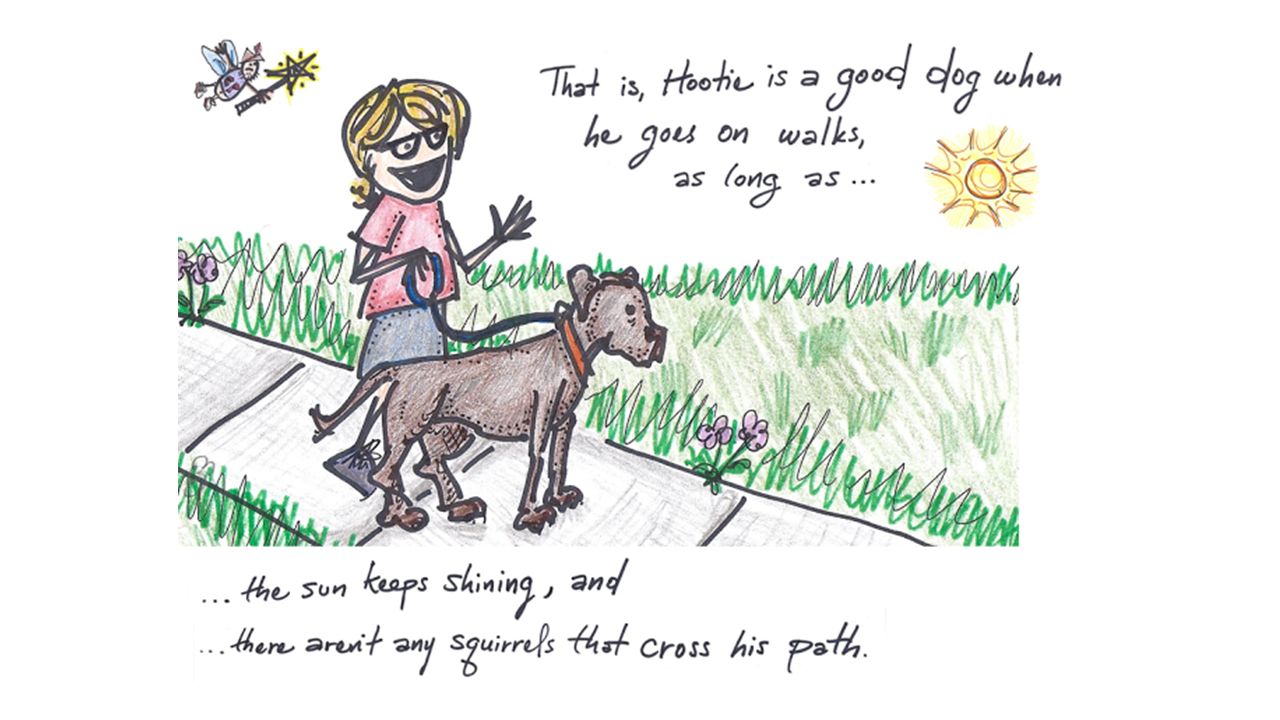 That is, Hootie is a good dog when
he goes on walks,
as long as ...
... the sun keeps shining, and
... there aren't any squirrels that cross his path.